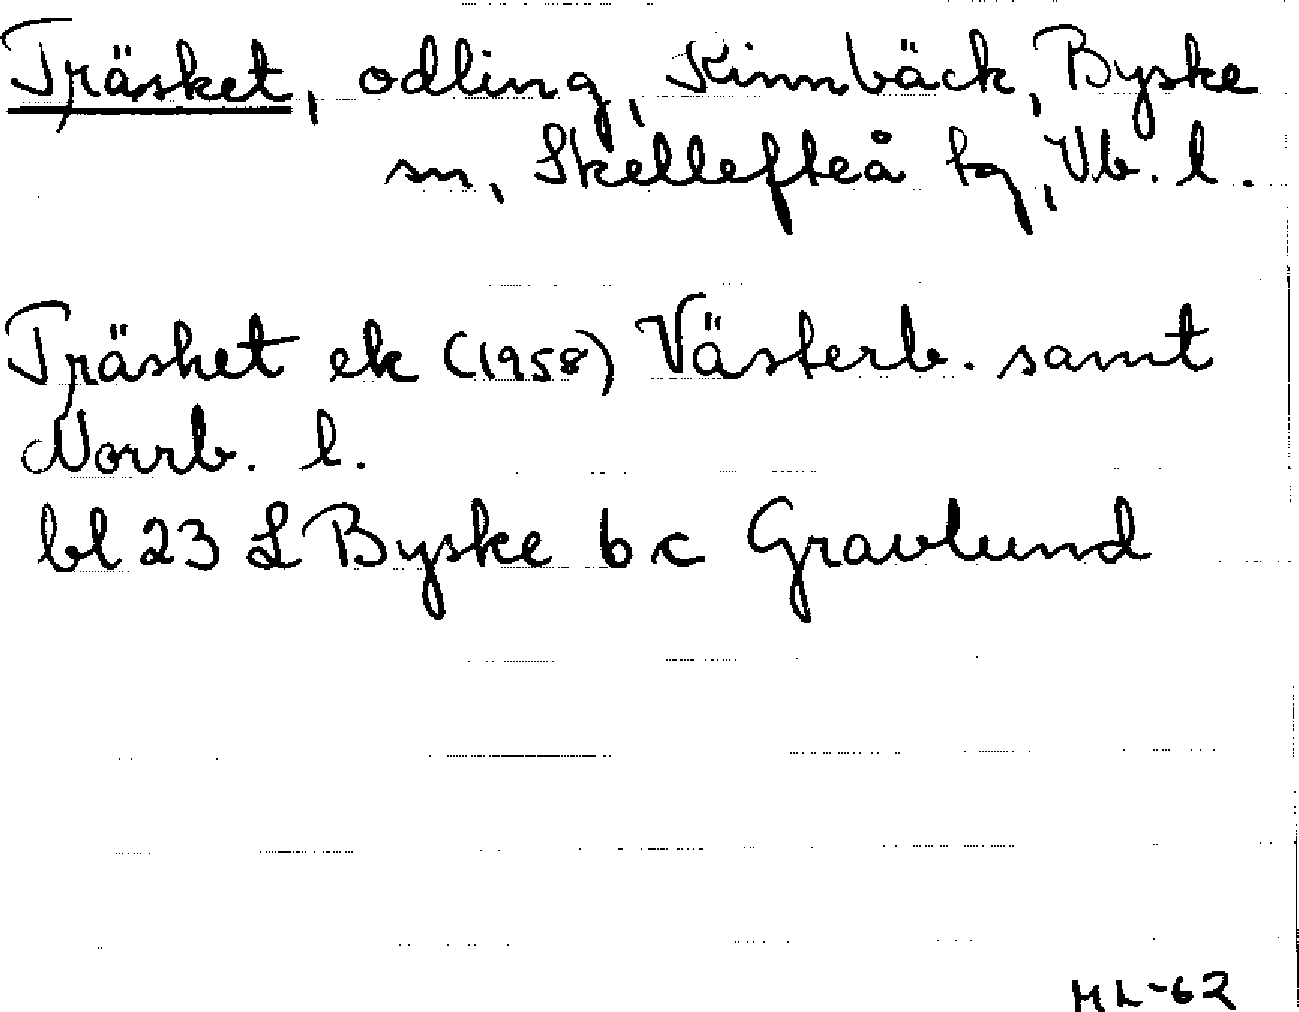 Träsket, odling, Kinnbäck, Byske
sn, Skellefteå tg, Vb. l.
Träsket ek (1958) Västerb. samt
Norrb. l.
bl 23 L Byske b c Gravlund
HL-62